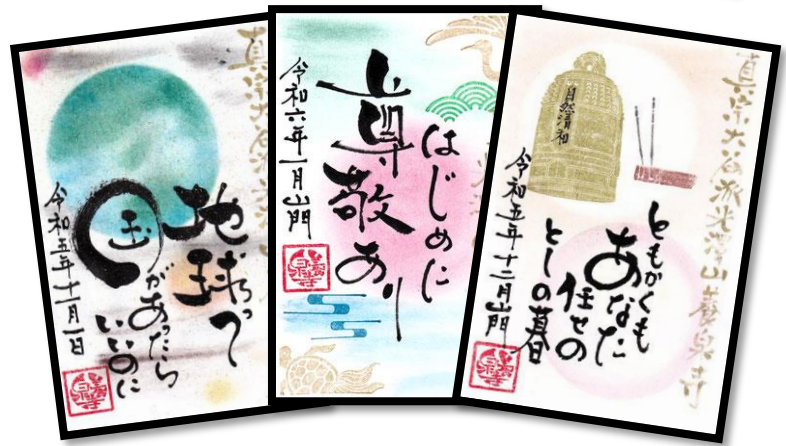 真宗大谷派光澤山
地球って
国があったら
いいのに
令和五年十一月一日
はじめに
尊敬あり
令和六年一月山門
真宗大谷派光澤山
泉寺
自然清和
ともかくも
あなた
任せの
としの暮
令和五年十二月山門